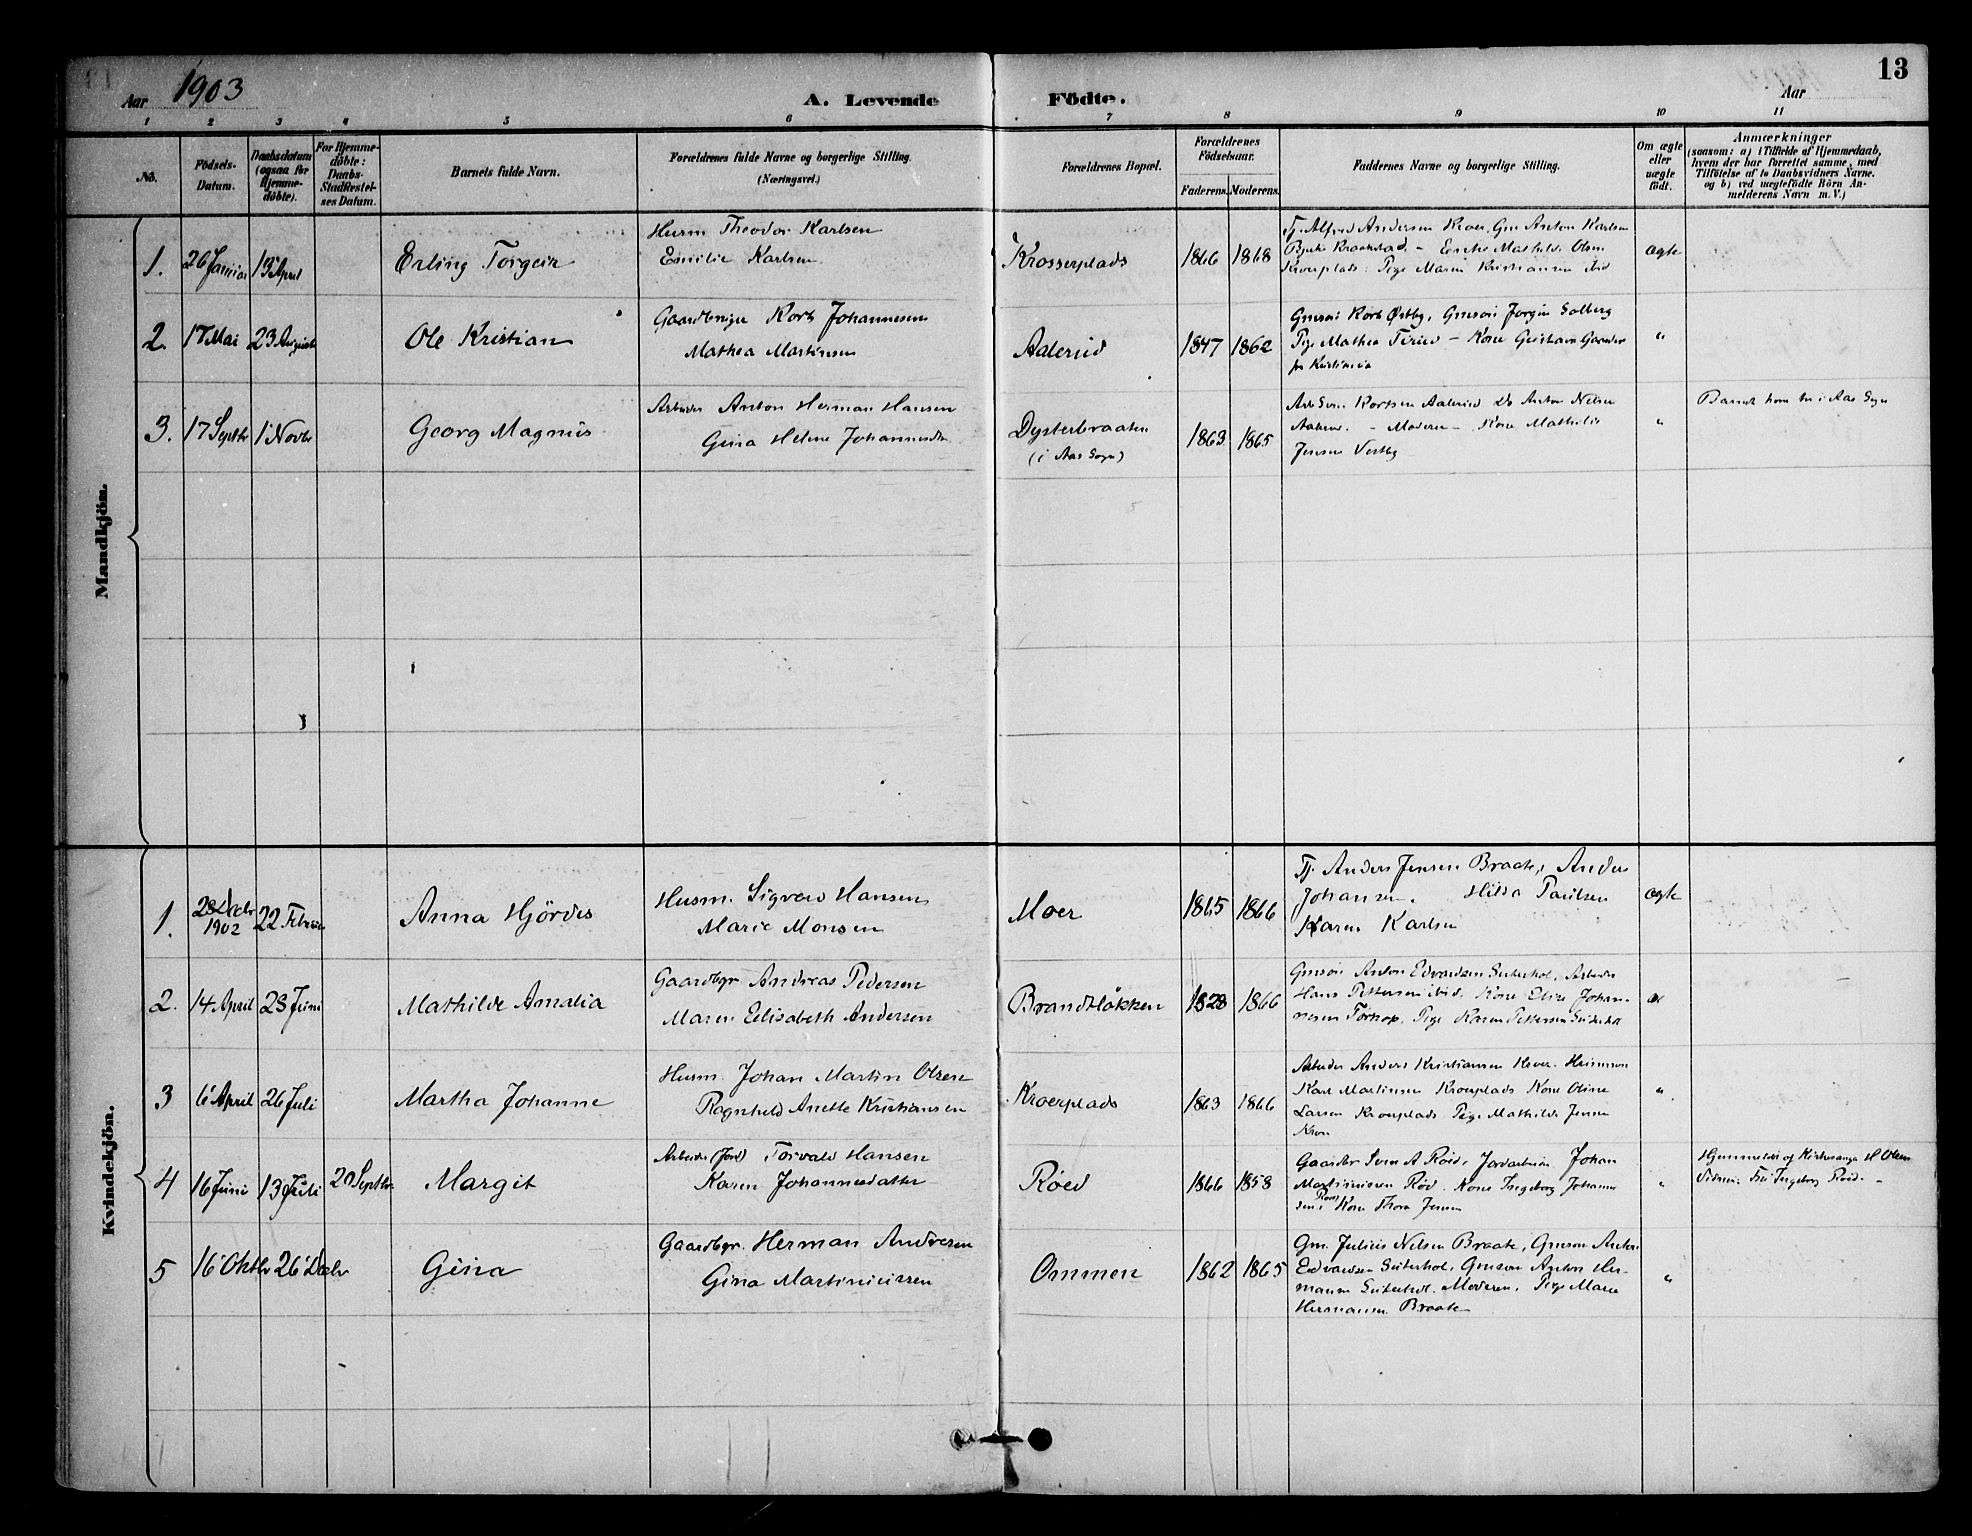 Aar 1903
A. Levende Födte.
13
Aar
1 2 3 4 5 6 7 8 9 10 11
No.
Födsels-Datum.
Daabsdatum (ogsaa for Hjemme-döbte).
For Hjemme-döbte: Daabs-Stadfæstel-ses Datum.
Barnets fulde Navn.
Forældrenes fulde Navne og borgerlige Stilling.
(Næringsvei.)
Forældrenes Bopæl.
Forældrenes Födselsaar.
Faderens. Moderens.
Faddernes Navne og borgerlige Stilling.
Om ægte eller uægte födt.
Anmærkninger
(saasom: a) i Tilfælde af Hjemmedaab,
hvem der har forrettet samme, med
Tilföielse af to Daabsvidners Navne.
og b) ved uægtefödte Börn An-
melderens Navn m.V.)
Mandkjön.
1. 26 Januar 13 April
Erling Torgeir
Husm Theodor Karlsen
Emilie Karlsen
Krosserplads
1866 1868
Tj. Alfred Andersen Kroer, Gm Anton Karlsen
Kraakstad - Enke Mathilde Olsen
Kroerplads. Pige Maren Kristiansen ibid
ægte
2. 17 Mai 23 August
Ole Kristian
Gaardbruger Kort Johannesen
Mathea Martinsen
Aalerud
1847 1862
Gmsøn Kort Østby, Gmsøn Jørgen Solberg
Pige Mathea - Kone
fr Kristiania
"
3. 17 Septbr 1 Novbr
Georg Magnus
Arbeider Anton Herman Hansen
Gina Helene Johannesdtr
Dysterbraaten
(i Aas Sogn)
1863 1865
Arb Sven Kortsen Aalerud Do Anton Nilsen
Aalerud. - Moderen - Kone Mathilde
Jensen Vestby
"
Barnet hjem i Aas Sogn
Kvindekjön.
1. 28 Decbr 1902 22 Februar
Anna Hjördis
Husm. Sigvard Hansen
Marie Monsen
Moer
1865 1866
Tj. Anders Jensen Braate, Anders
Johansen. Hilda Paulsen
Karen Karlsen
ægte
2. 14 April 28 Juni
Mathilde Amalia
Gaardbgr Andreas Pedersen
Maren Elisabeth Andersen
Brandtløkken
1828 1866
Gmsøn Anton Edvardsen Seiterhol, Arbeider
Hans Pettersen ibid. Kone Elise Johan-
nesen Torhop, Pige Karen Pettersen Seiterhol
3 6 April 26 Juli
Martha Johanne
Husm. Johan Martin Olsen
Ragnhild Anette Kristiansen
Kroerplads
1863 1866
Arbeider Anders Kristiansen Kroer. Husmm
Karl Martinsen Kroerplads Kone Oline
Larsen Kroerplads Pige Mathilde Jensen
Kroer
"
4 16 Juni 13 Juli 20 Septbr
Margit
Arbeider (Jord) Torvald Hansen
Karen Johannesdatter
Röed
1866 1858
Gaardbr Sven A Röed, Jordarbeider Johan
Martiniusen Röd. Kone Ingeborg Johanne
sen, Röed Kone Thora Jensen
"
Hjemmedøbt af Kirkesanger H Olsen
Vidner: Fru Ingeborg Röed -
5 16 Oktbr 26 Decbr
Gina
Gaardbgr. Herman Andresen
Gina Martiniussen
Ommen
1862 1865
Gm. Julius Nilsen Braate, Gmsøn Anton
Edvardsen Seiterhol, Gmsøn Anton Her-
mansen Seiterhol. Moderen, Pige Marie
Hermansen Braate
"